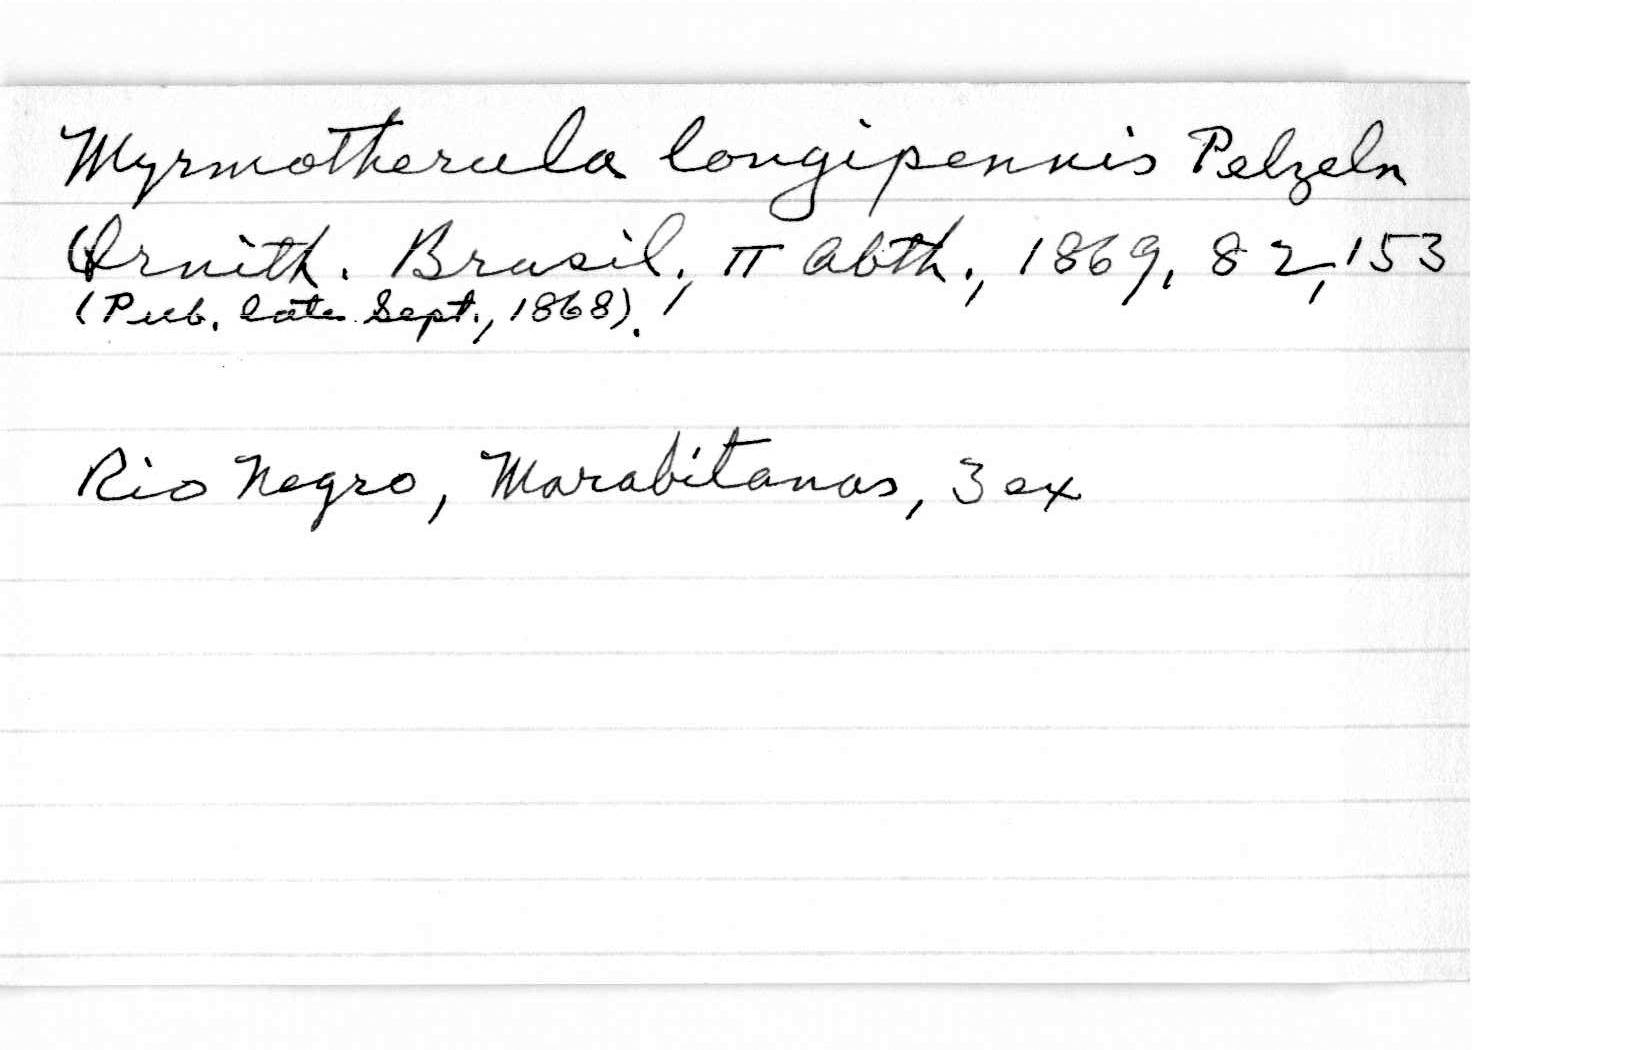 Myrmotherula longipennis Pelzeln
Ornith. Brasil., II Abth., 1869, 82, 153
(Pub. late Sept., 1868).
Rio Negro, Marabitanas, 3 ex